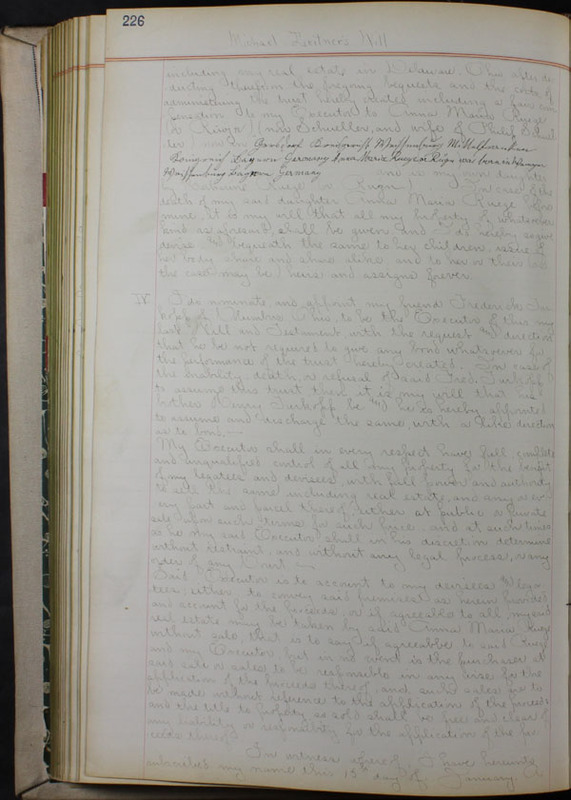 226
Michael Zeitner's Will
including any real estate in Delaware Ohio, after de
ducting therefrom the foregoing bequests and the costs of
administering the trust hereby created including a fair com
pensation to my Executor to Anna Maria Ruege
(or Ringa) (now Schueller, and wife of Philip
now of
Germany Anna Maria Ruege or Riga was born in
Weissenburg Bayern Germany and using my daughter
Catharine Ruege or Ruga) In case of the
death of my said daughter Anna Maria Ruege before
mine, it is my will that all my property of whatsoever
kind as aforesaid, shall be given and I do hereby give
devise and bequeath the same to her children, issue of
her body share and share alike and to her or their
the case may be heirs and assigns forever.
IV. I do nominate and appoint my friend Frederick
of Columbus Ohio, to be the Executor of this my
Last Will and Testament, with the request and direction
that he be not required to give any bond whatsoever for
the performance of the trust hereby created. In case of
the inability death, or refusal of said Fred.
to assume this trust then it is my will that his
brother Henry be and he is hereby appointed
to assume and discharge the same, with a like direction
as to bond.
My Executor shall in every respect have full, complete
and unqualified control of all my property for the benefit
of my legatees and devisees, with full power and authority
to sell the same including real estate, and any or ev
ery part and parcel thereof either at public or private
sale upon such terms for such price, and at such times
as he my said Executor shall in his discretion determine
without restraint and without any legal process, or any
order of any Court
Said Executor is to account to my devisees & lega
tees, either to convey said premises as herein provided
and account for the proceeds, or if agreeable to all, my said
real estate may be taken by said Anna Maria Ruege
without sale, that is to say if agreeable to said Ruege
and my Executor, but in no event is the purchaser at
said sale or sales to be responsible in any wise for the
application of the proceeds thereof, and such sales are to
be made without reference to the application of the proceeds
and the title to property so sold shall be free and clear of
any liability or responsibility for the application of the pro
ceeds thereof.
In witness whereof, I have hereunto
subscribed my name this 13th day of January A